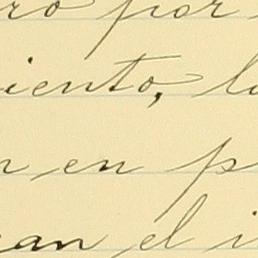 ro por
iento, l
n en p
an el i